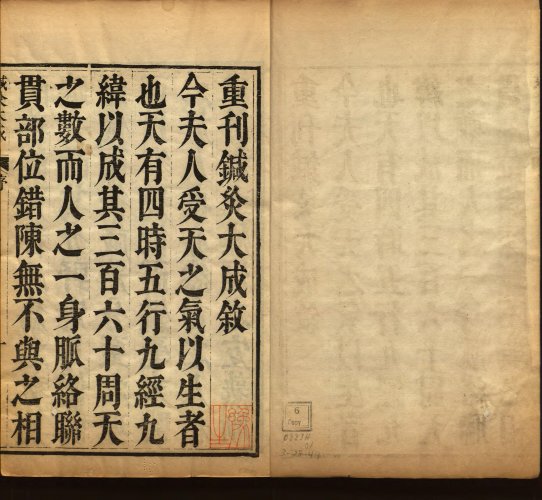 重刊鍼灸大成敘
今夫人受天之氣以生者
也天有四時五行九經九
緯以成其三百六十周天
之數而人之一身脈絡聯
貫部位錯陳無不與之相
序
一
6